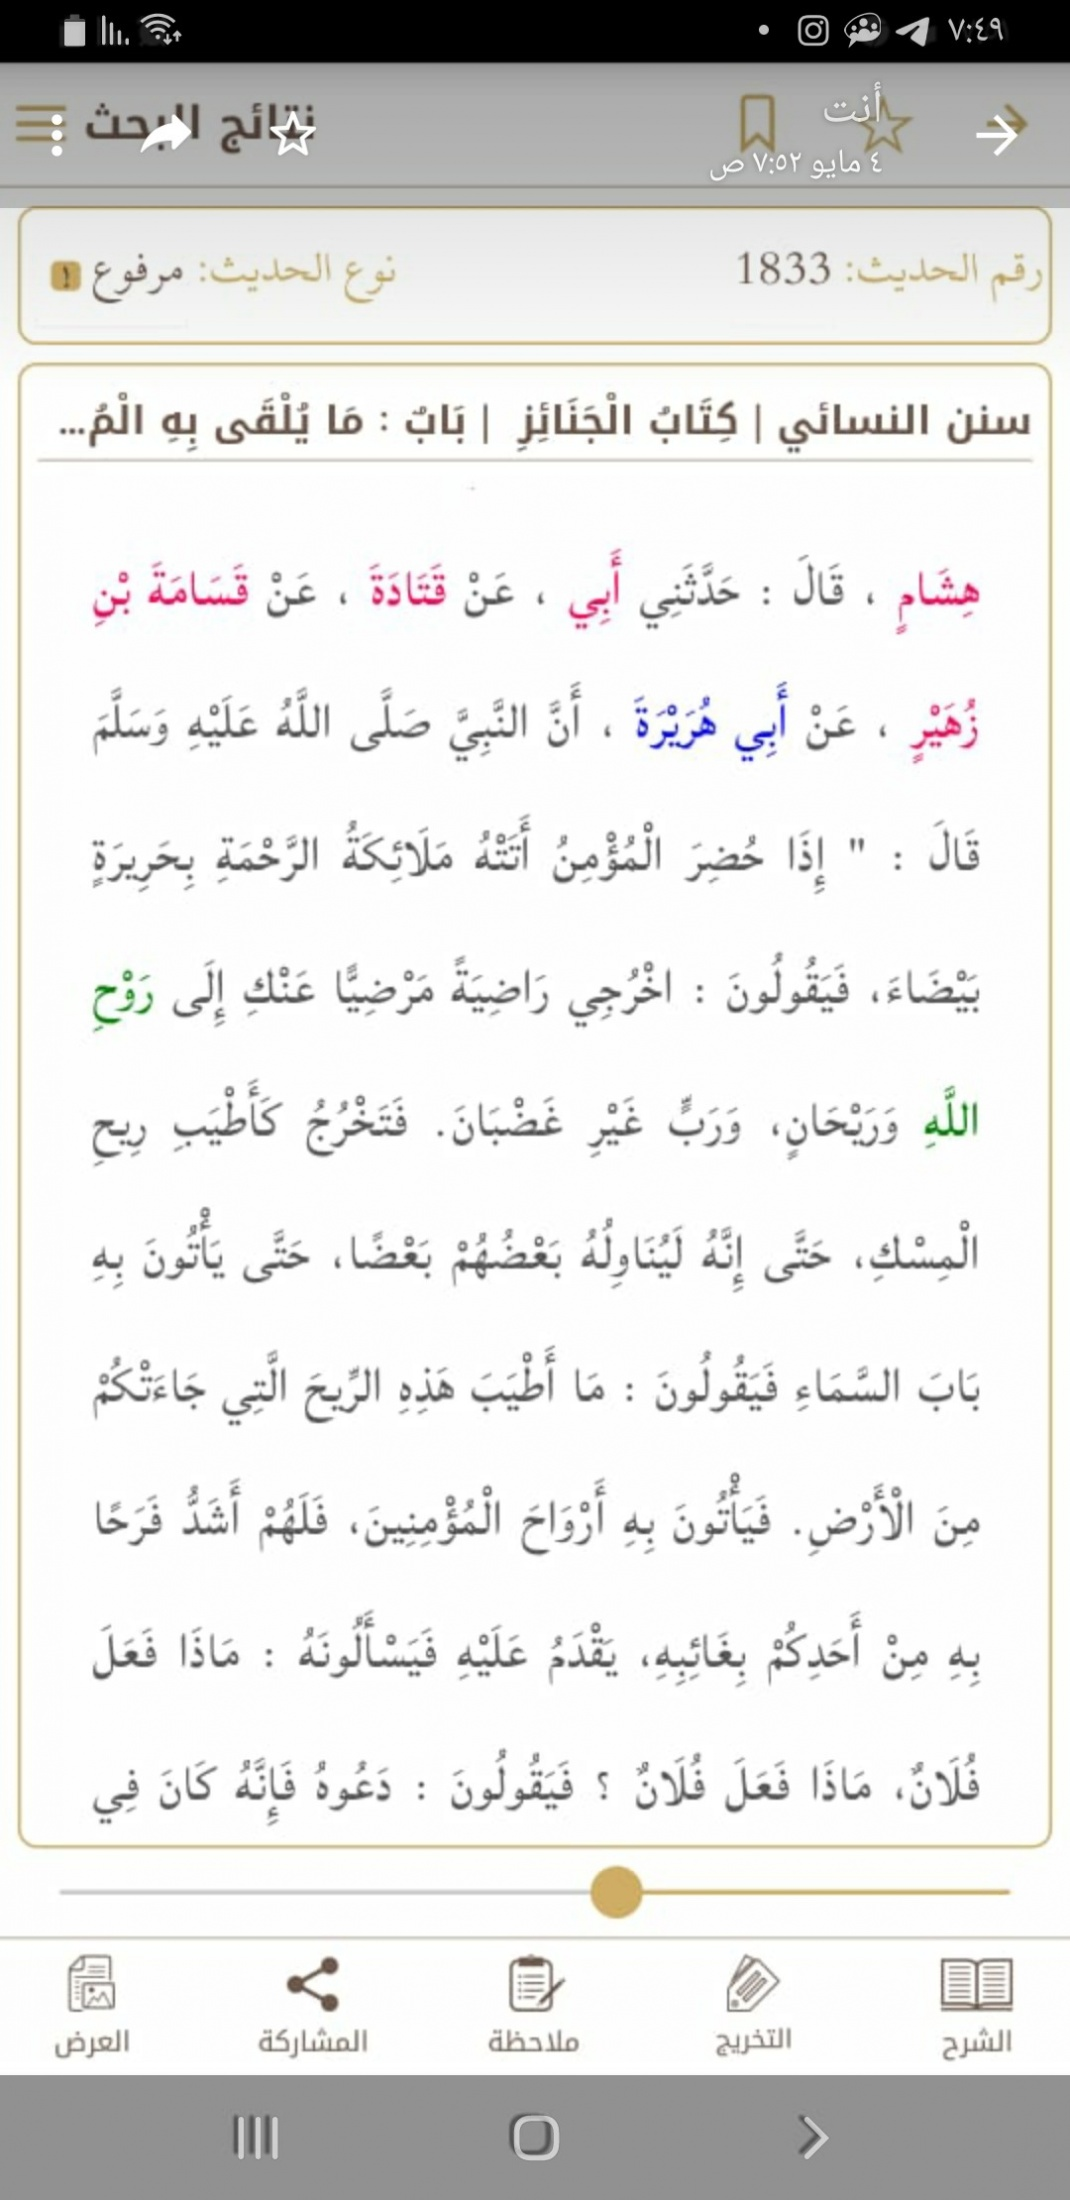 ٧:٤٩
نتائج البحث
أنت
٤ مايو ٧:٥٢ ص
رقم الحديث: 1833 نوع الحديث: مرفوع
سنن النسائي | كِتَابُ الْجَنَائِزِ | بَابٌ : مَا يُلْقَى بِهِ الْمُ...
هِشَامٍ ، قَالَ : حَدَّثَنِي أَبِي ، عَنْ قَتَادَةَ ، عَنْ قَسَامَةَ بْنِ
زُهَيْرٍ ، عَنْ أَبِي هُرَيْرَةَ ، أَنَّ النَّبِيَّ صَلَّى اللَّهُ عَلَيْهِ وَسَلَّمَ
قَالَ : " إِذَا حُضِرَ الْمُؤْمِنُ أَتَتْهُ مَلَائِكَةُ الرَّحْمَةِ بِحَرِيرَةٍ
بَيْضَاءَ، فَيَقُولُونَ : اخْرُجِي رَاضِيَةً مَرْضِيًّا عَنْكِ إِلَى رَوْحِ
اللَّهِ وَرَيْحَانٍ، وَرَبٍّ غَيْرِ غَضْبَانَ. فَتَخْرُجُ كَأَطْيَبِ رِيحِ
الْمِسْكِ، حَتَّى إِنَّهُ لَيُنَاوِلُهُ بَعْضُهُمْ بَعْضًا، حَتَّى يَأْتُونَ بِهِ
بَابَ السَّمَاءِ فَيَقُولُونَ : مَا أَطْيَبَ هَذِهِ الرِّيحَ الَّتِي جَاءَتْكُمْ
مِنَ الْأَرْضِ. فَيَأْتُونَ بِهِ أَرْوَاحَ الْمُؤْمِنِينَ، فَلَهُمْ أَشَدُّ فَرَحًا
بِهِ مِنْ أَحَدِكُمْ بِغَائِبِهِ، يَقْدَمُ عَلَيْهِ فَيَسْأَلُونَهُ : مَاذَا فَعَلَ
فُلَانٌ، مَاذَا فَعَلَ فُلَانٌ ؟ فَيَقُولُونَ : دَعُوهُ فَإِنَّهُ كَانَ فِي
الشرح التخريج ملاحظة المشاركة العرض